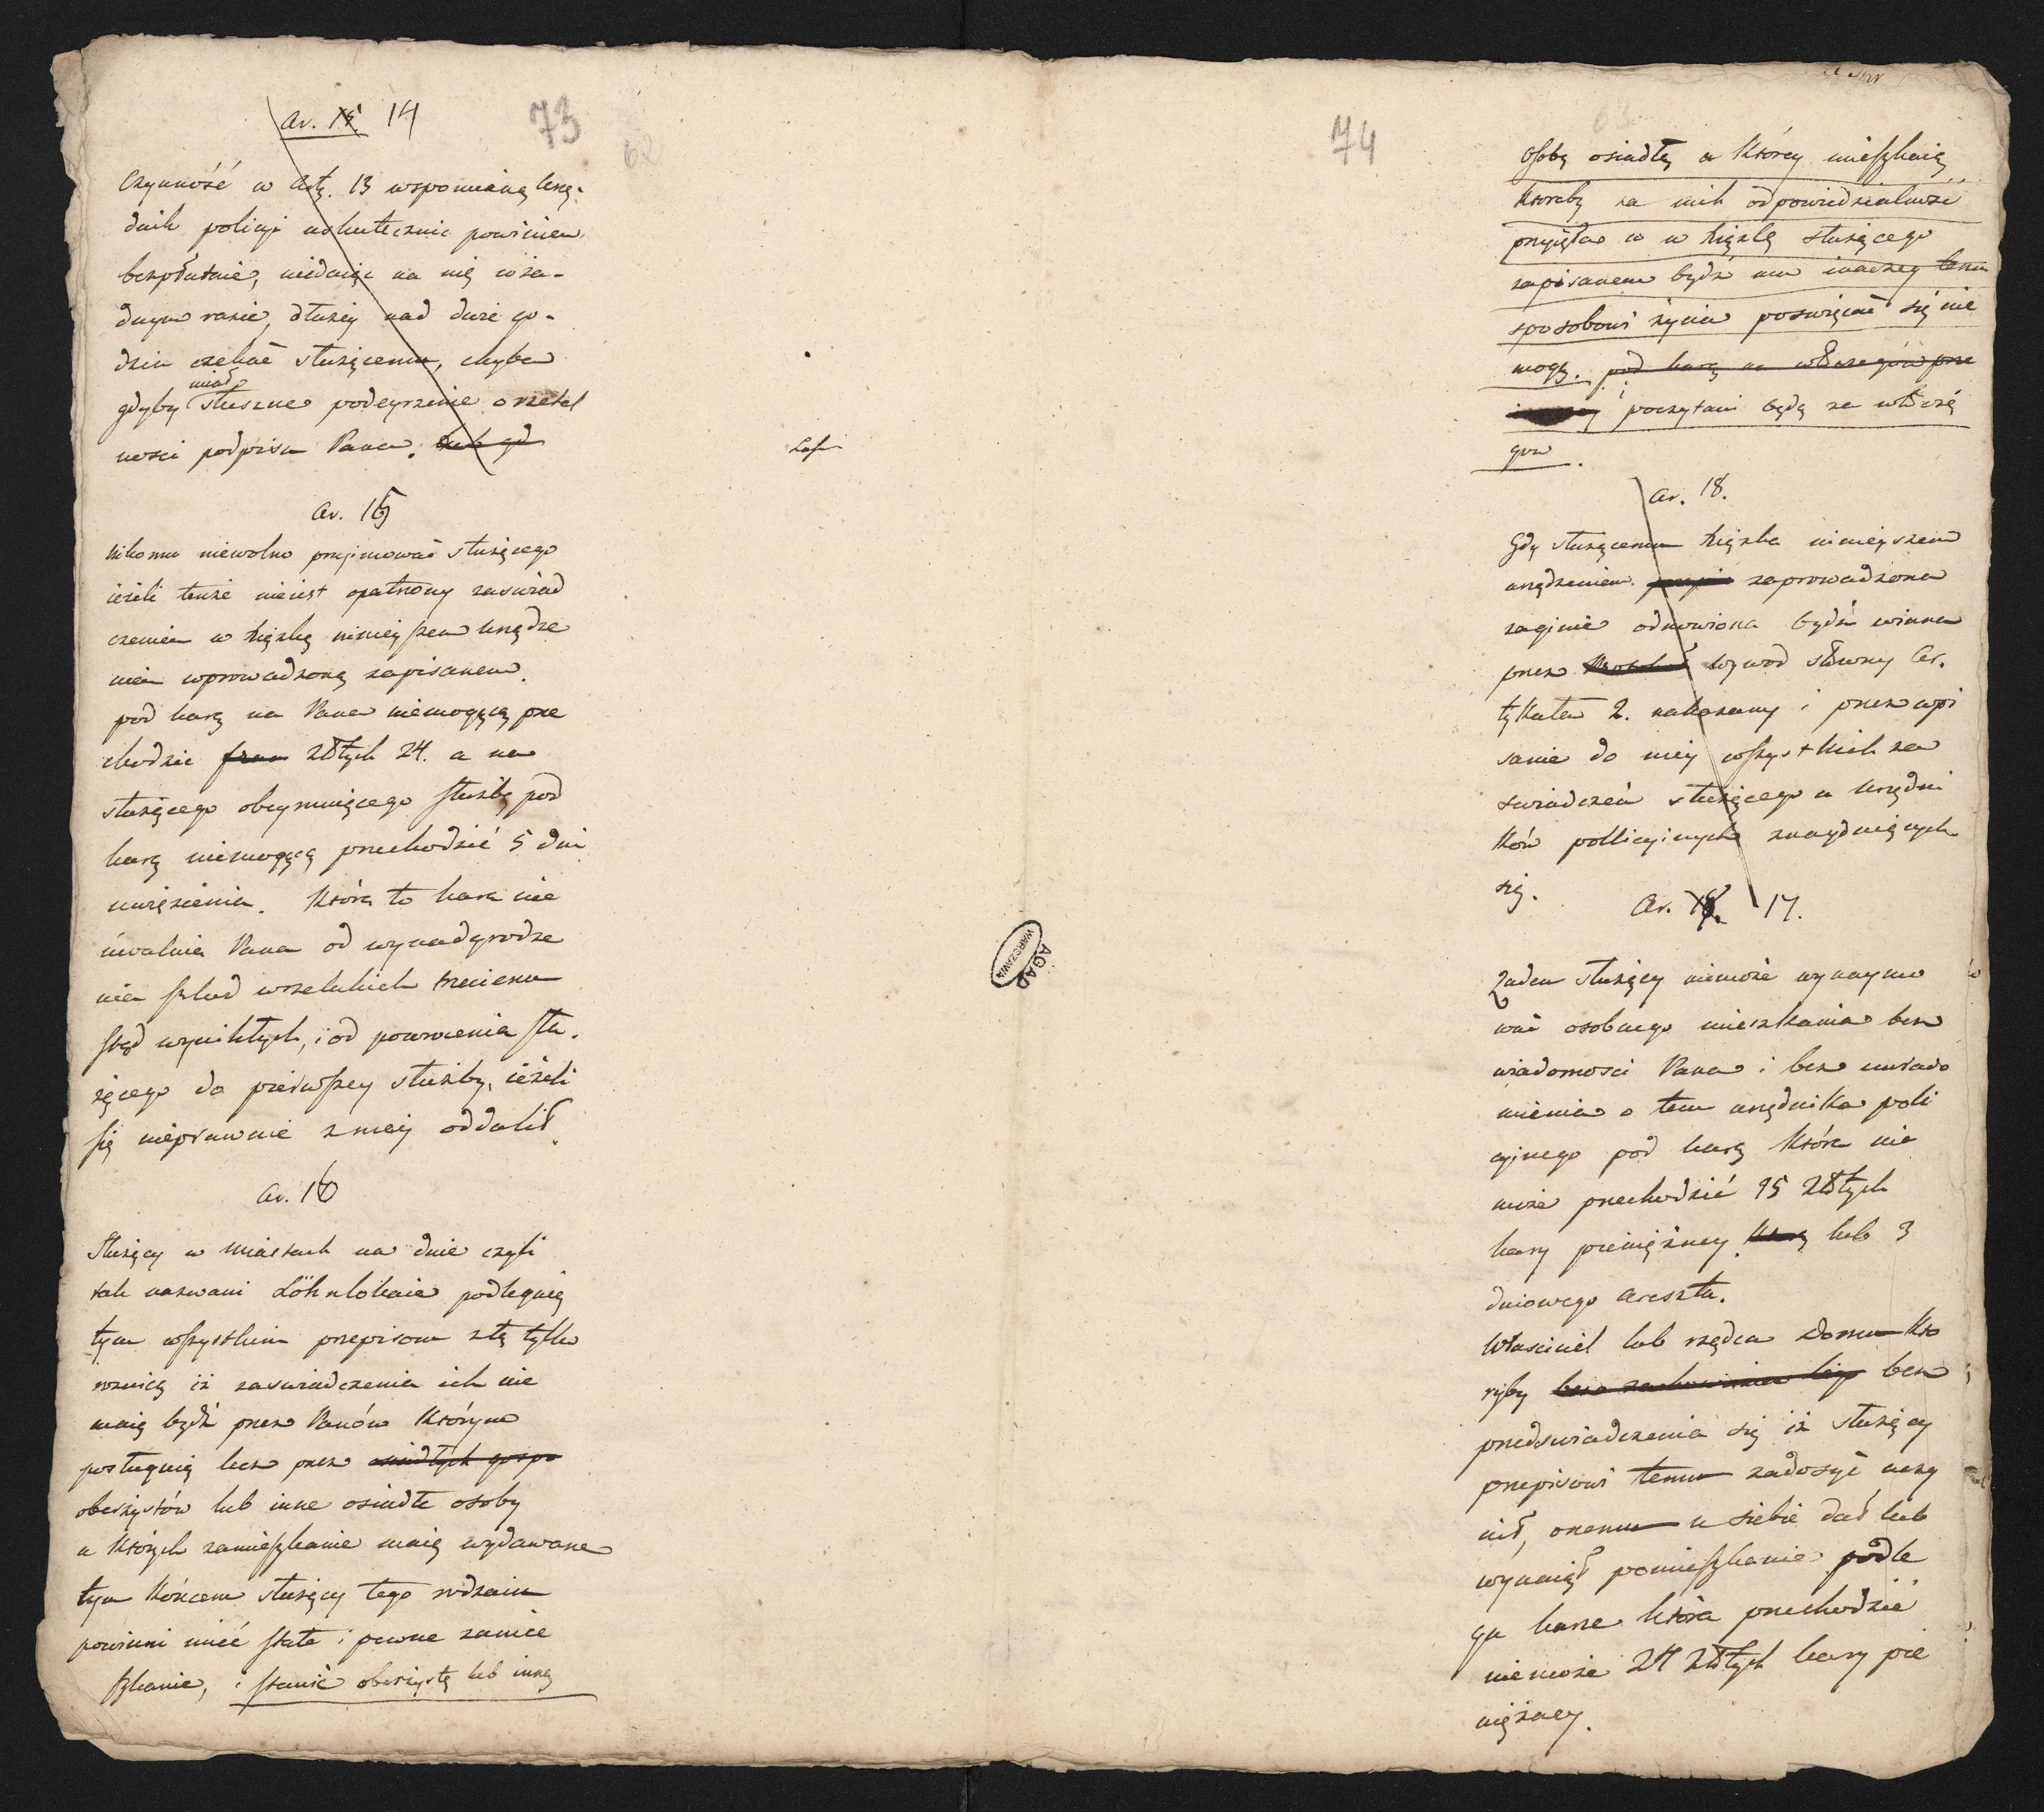 Ar. 15 14
73
62
Czynność w Arty. 13 wspomnianą Urzę-
dnik policyi uskutecznić powinien
bezpłatnie, niedaiąc na nią w ża-
dnym razie, dłużey nad dwie go-
dzin czekać służącemu, chyba
miał
gdyby słuszne podeyrzenie o rzetel
ności podpisu Pana. lub gd
Ar. 15
Nikomu niewolno przyimować służącego
ieżeli tenże nieiest opatrzony zaświad
czeniem w książkę ninieyszem Urządze
niem wprowadzoną zapisanem.
pod karą na Pana niemogącą prze
chodzić fran złłtych 24. a na
służącego obeymuiącego służbę pod
karą niemogącą przechodzić 5 dni
uwięzienia. Która to kara nie
uwalnia Pana od wynadgrodze
nia szkód wszelakich trzeciemu
stąd wynikłych, i od powrócenia słu-
żącego do pierwszey służby, ieżeli
się nieprawnie z niey oddalił.
Ar. 16
Służący w miastach na dnie czyli
tak nazwani Löhnlokaie podlegaią
tym wszystkim przepisom z tą tylko
roznicą iż zaświadczenia ich nie
maią bydź przez Panów którym
posługuią lecz przez osiadłych gospo
oberżystów lub inne osiadłe osoby
u których zamieszkanie maią wydawane
tym końcem służący tego rodzaiu
powinni mieć stałe i pewne zamie
szkanie, i stawić oberżystę lub inną
74
osobę osiadłą u którey mieszkaią
któraby za nich odpowiedzialność
przyięła w książkę służącego
zapisanem bydź ma inaczey temu
sposobowi życia poświęcać się nie
mogą. pod karą na włóczęgów prze
i poczytani będą za włóczę
gow.
Ar. 18.
Gdy służącemu książka ninieyszem
urządzeniem przepi zaprowadzona
zaginie odnowiona bydź winna
przez wywod słowny Ar-
tykułu 2. nakazany i przez wpi
sanie do niey wszystkich za
świadczeń służącego u Urzędni
ków pollicyinych znayduiących
się.
Ar. 18. 17.
Żaden służący niemoże wynaymo
wać osobnego mieszkania bez
wiadomości Pana i bez uwiado
mienia o tem urzędnika poli
cyinego pod karą która nie
może przechodzić 15 złłtych
kary pieniężney którą lub 3
dniowego aresztu.
Właściciel lub rządca domu któ
ryby bez zachowania tego bez
przedświadczenia się iż służący
przepisowi temu zadosyć uczy
nił, onemu u siebie dał lub
wynaiął pomieszkanie podle
ga karze która przechodzić
niemoże 24 złłtych kary pie
niężney.
AGAD
WARSZAWA